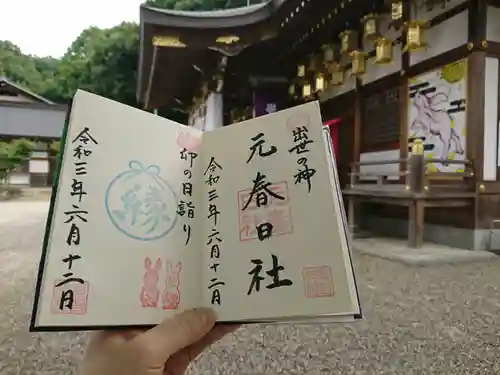 出世の神
元春日社
令和三年六月十二日
卯の日詣り
縁
令和三年六月十二日